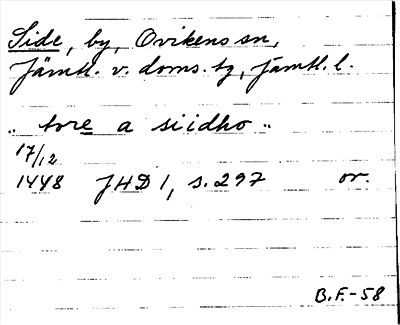 Side, by, Ovikens sn,
Jämtl. v. doms. tg, Jämtl. l.
„ tore a siidho „
17/12
1448 JHD 1, s. 297 or.
B.F.-58